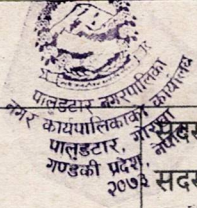 पालुङटार नगरपालिका
नगर कार्यपालिकाको कार्यालय
पालुङटार, गोरखा
गण्डकी प्रदेश, नेपाल
२०७३
सदस